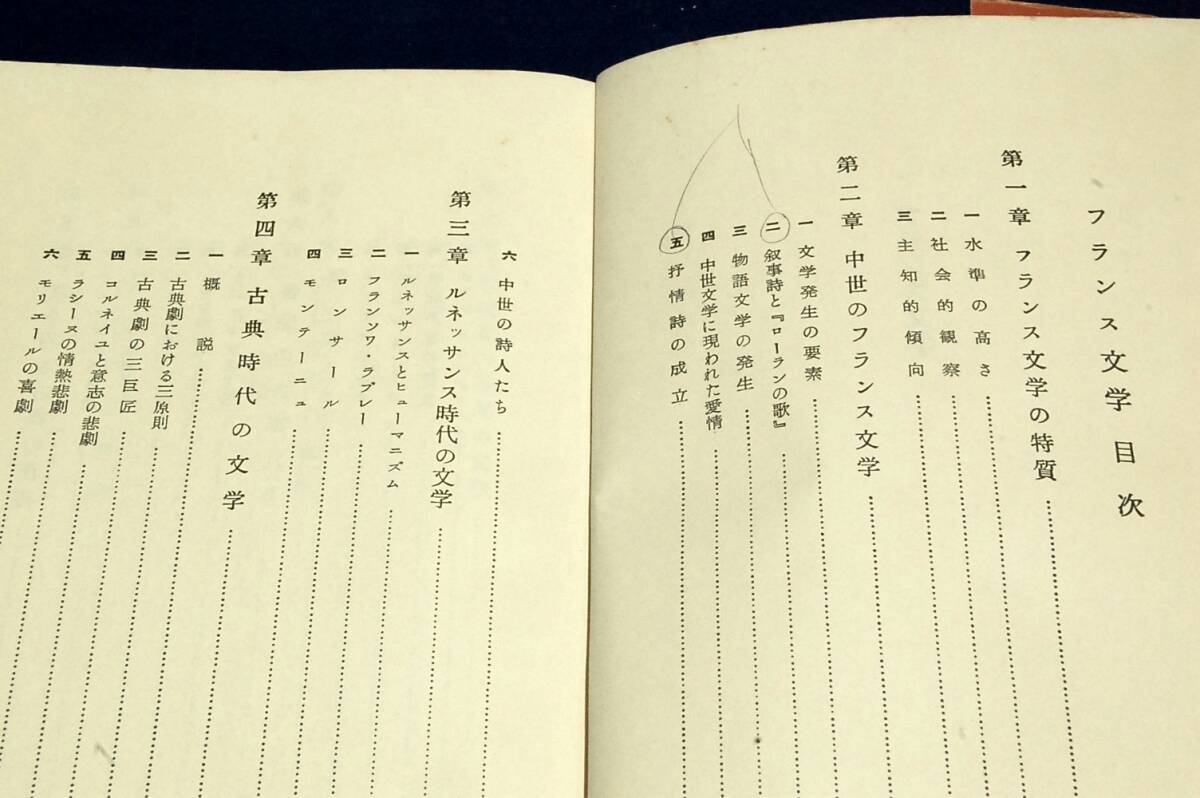 フランス文学 目次
第一章 フランス文学の特質
一 水準の高さ
二 社会的観察
三 主知的傾向
第二章 中世のフランス文学
一 文学発生の要素
二 叙事詩と『ローランの歌』
三 物語文学の発生
四 中世文学に現われた愛情
五 抒情詩の成立
六 中世の詩人たち
第三章 ルネッサンス時代の文学
一 ルネッサンスとヒューマニズム
二 フランソワ・ラブレー
三 ロンサール
四 モンテーニュ
第四章 古典時代の文学
一 概説
二 古典劇における三原則
三 古典劇の三巨匠
四 コルネイユと意志の悲劇
五 ラシーヌの情熱悲劇
六 モリエールの喜劇